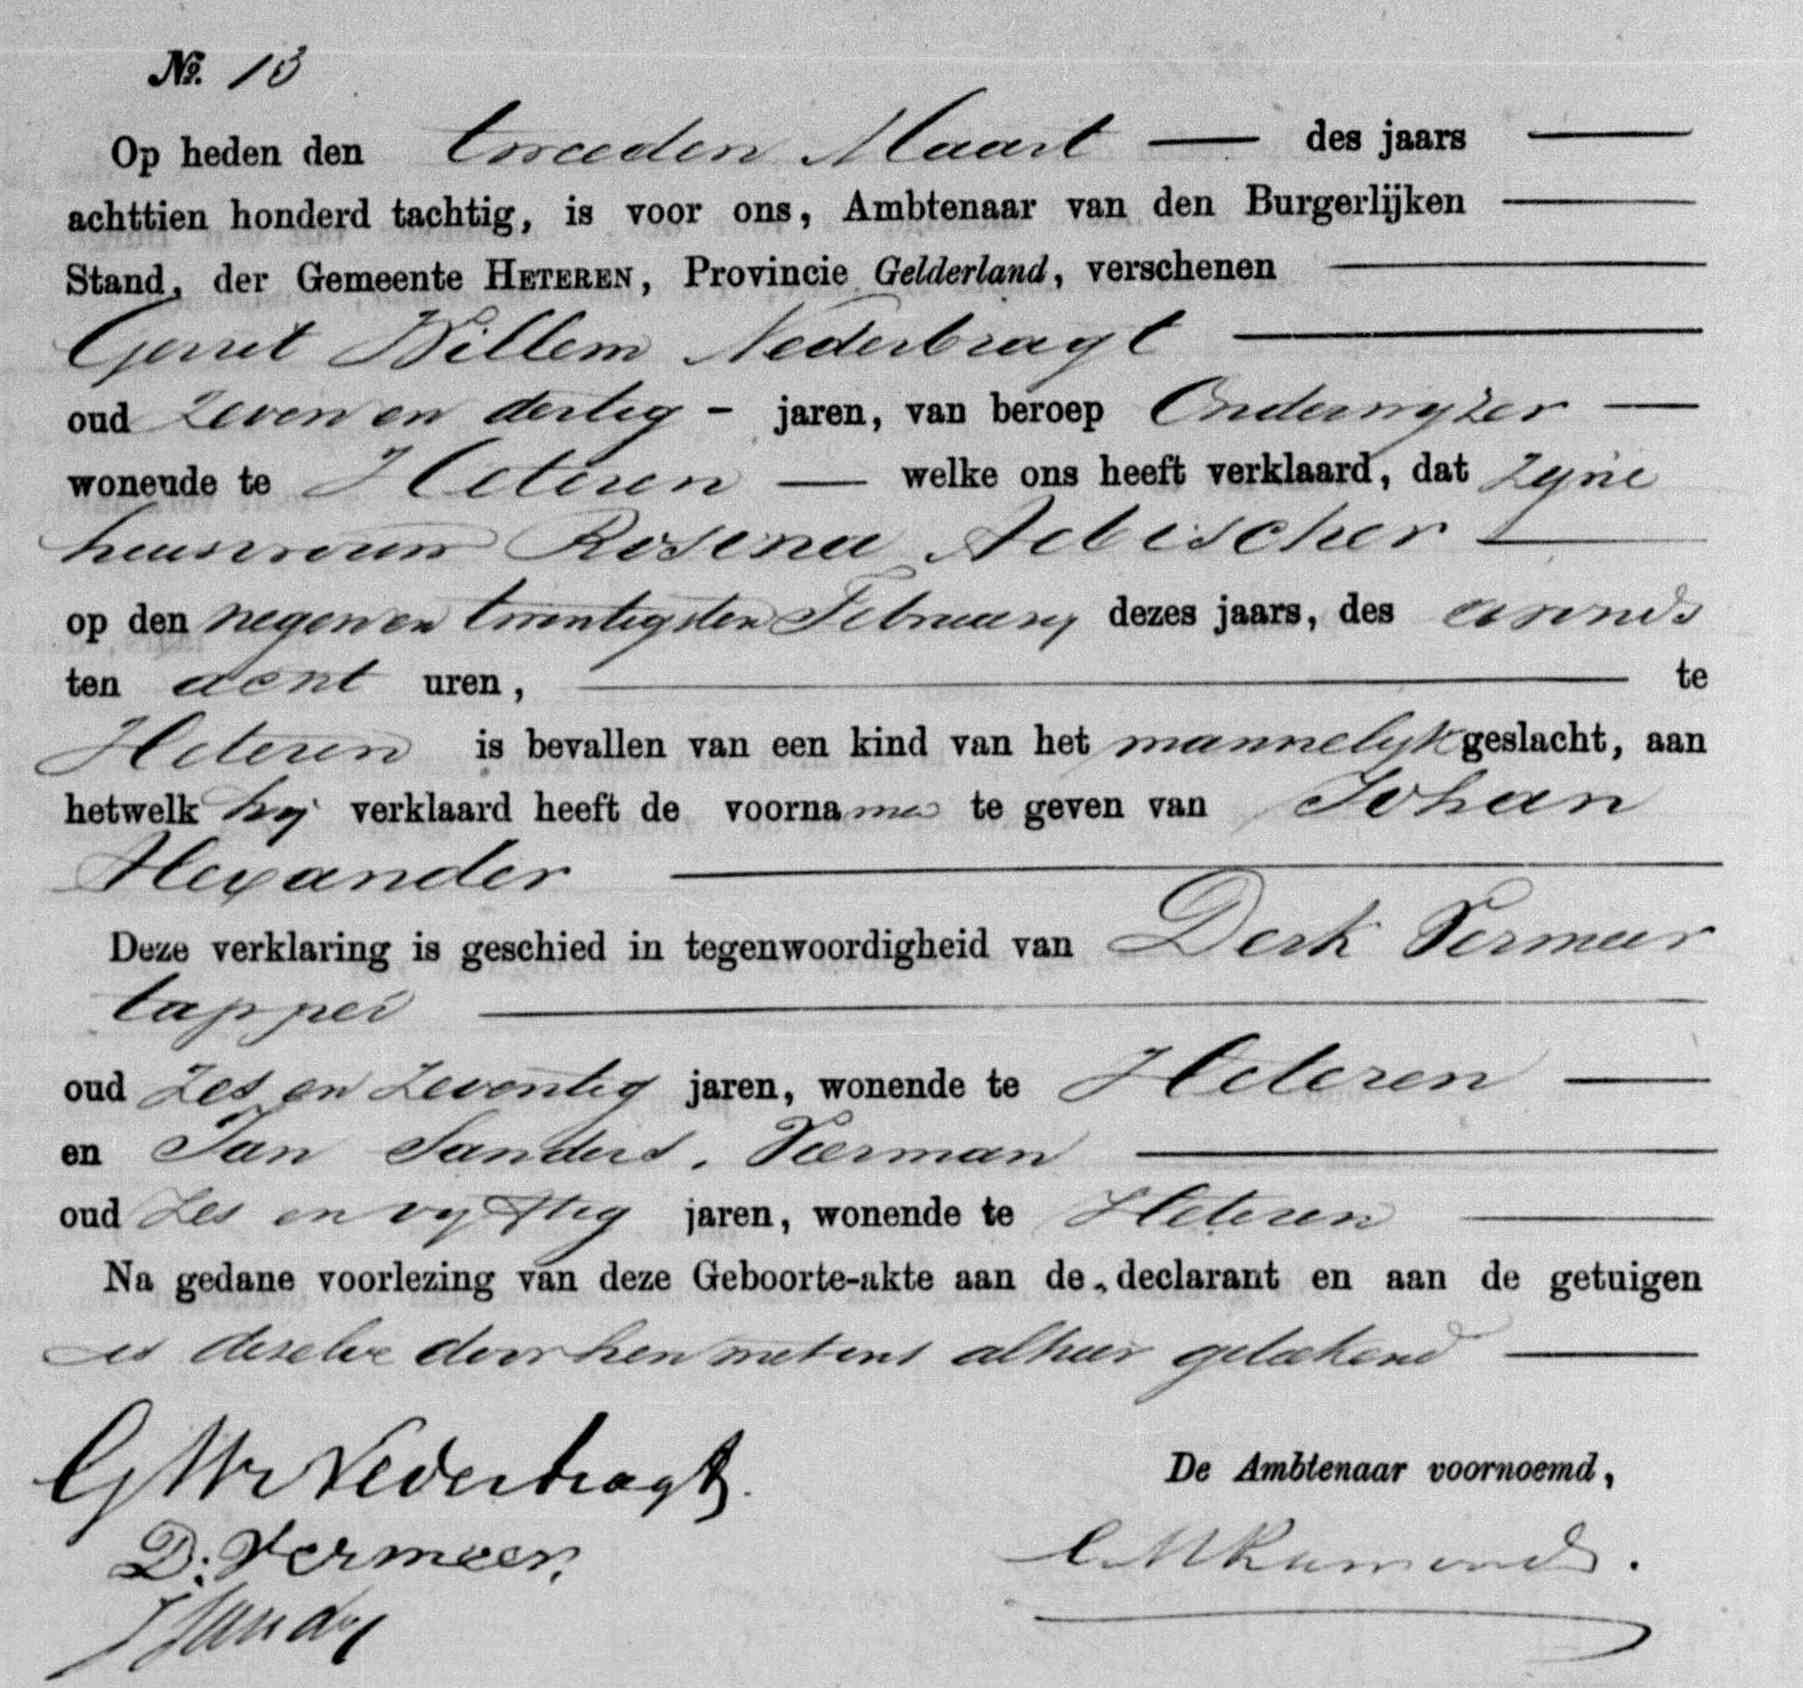 No. 13
Op heden den tweeden Maart des jaars
achttien honderd tachtig, is voor ons, Ambtenaar van den Burgerlijken
Stand, der Gemeente HETEREN, Provincie Gelderland, verschenen
Gerrit Willem Nederbragt
oud zeven en dertig - jaren, van beroep Onderwyzer
wonende te Heteren welke ons heeft verklaard, dat zyne
huisvrouw Rosina Aebischer
op den negen en twentigsten February dezes jaars, des avonds
ten acht uren, te
Heteren is bevallen van een kind van het mannelyk geslacht, aan
hetwelk hy verklaard heeft de voornamen te geven van Johan
Alexander
Deze verklaring is geschied in tegenwoordigheid van Derk Vermeer
tapper
oud zes en zeventig jaren, wonende te Heteren
en Jan Sanders, Veerman
oud zes en vyftig jaren, wonende te Heteren
Na gedane voorlezing van deze Geboorte-akte aan de declarant en aan de getuigen
is dezelve door hen met ons alhier geteekend
GW Nederbragt.
De Ambtenaar voornoemd,
D. Vermeer,